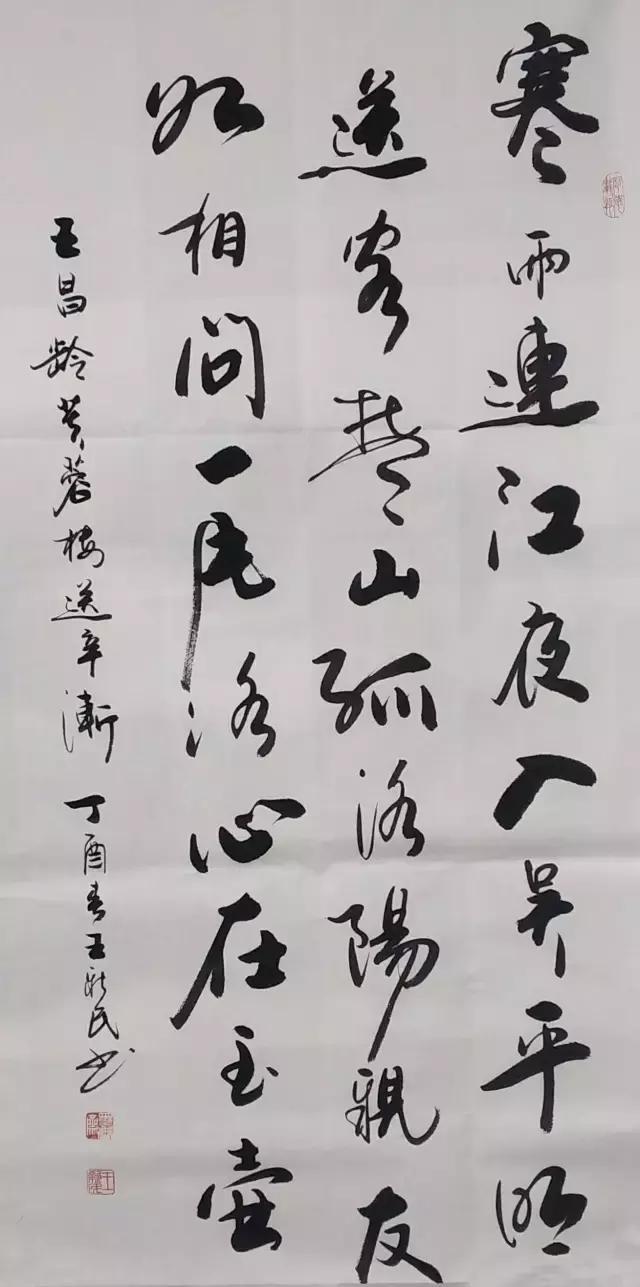 寒雨連江夜入吴平明
送客楚山孤洛陽親友
如相問一片冰心在玉壺
王昌齡芙蓉楼送辛漸 丁酉春王民书